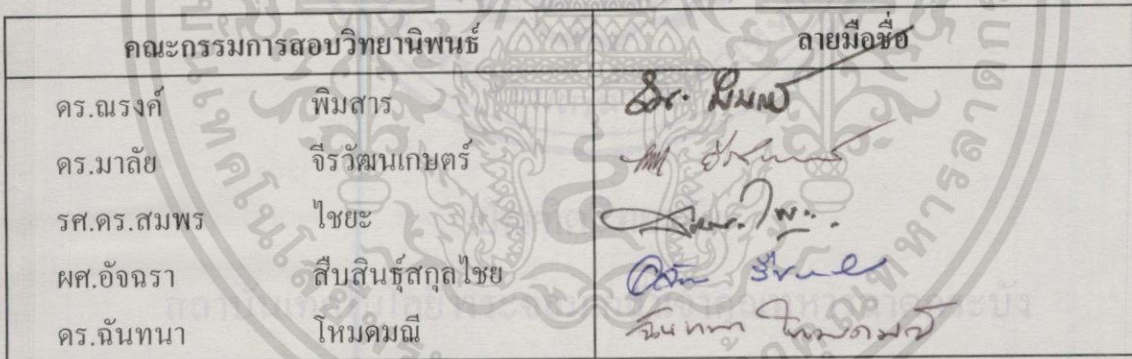 คณะกรรมการสอบวิทยานิพนธ์ ลายมือชื่อ
ดร.ณรงค์ พิมสาร
ดร.มาลัย จีรวัฒนเกษตร์
รศ.ดร.สมพร ไชยะ
ผศ.อัจฉรา สืบสินธุ์สกุลไชย
ดร.ฉันทนา โหมดมณี ฉันทนา โหมดมณี